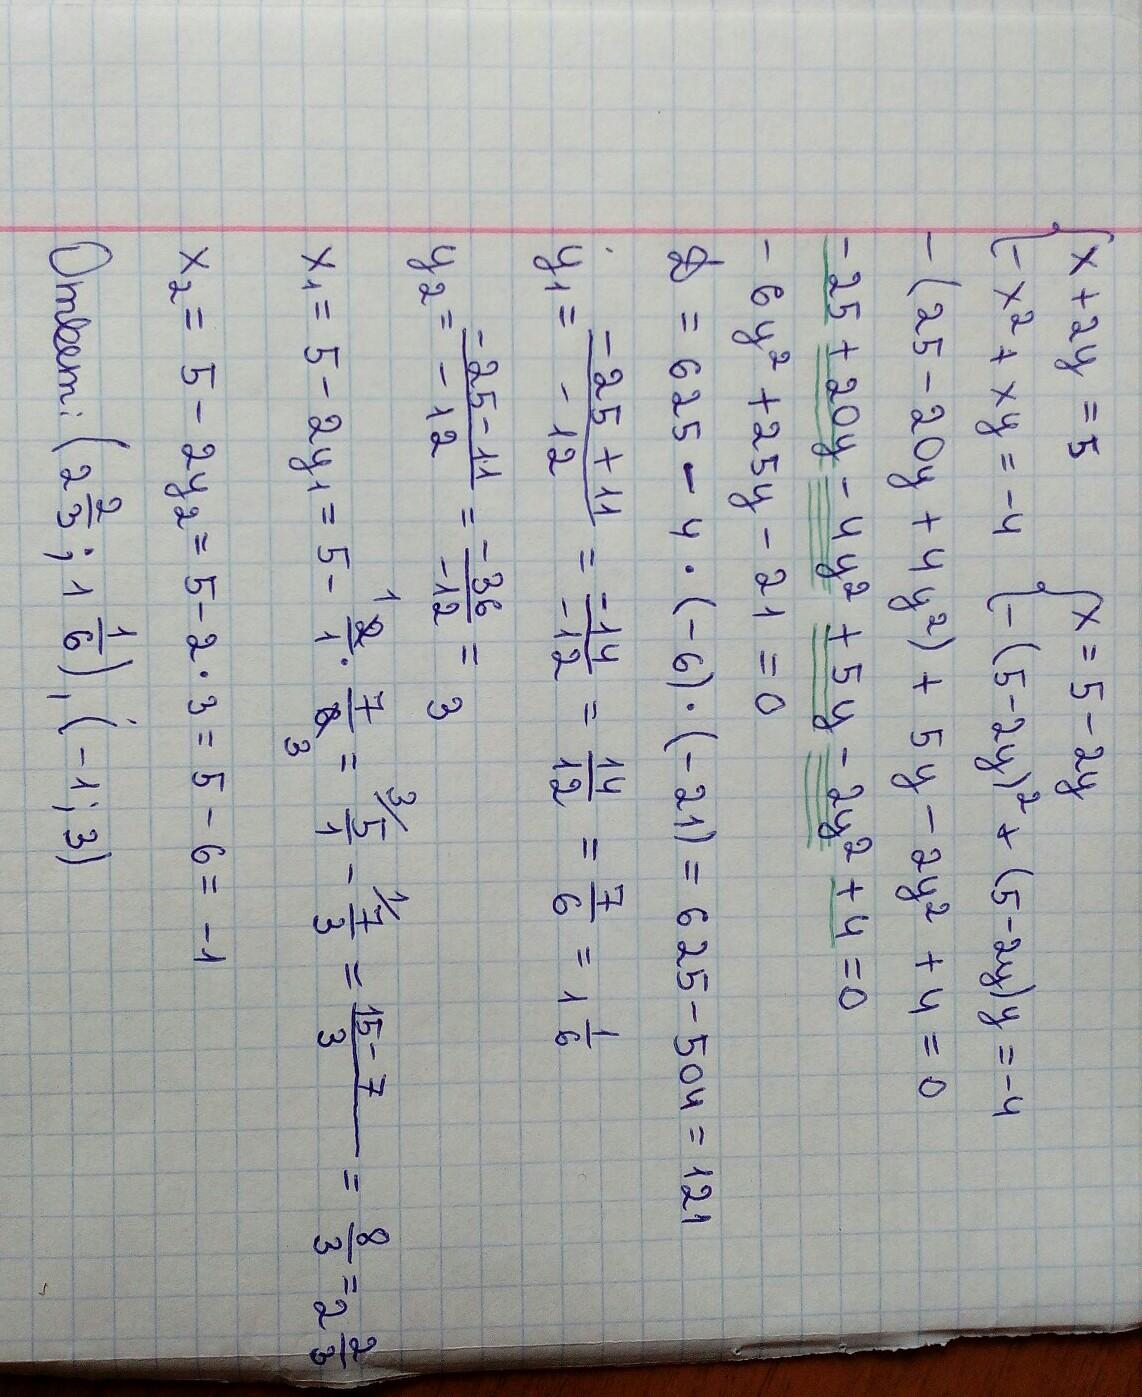 {x+2y=5 {x=5-2y
{-x²+xy=-4 {-(5-2y)²+(5-2y)y=-4
-(25-20y+4y²)+5y-2y²+4=0
-25+20y-4y²+5y-2y²+4=0
-6y²+25y-21=0
D=625-4·(-6)·(-21)=625-504=121
y₁=(-25+11)/(-12)=(-14)/(-12)=14/12=7/6=1 1/6
y₂=(-25-11)/(-12)=(-36)/(-12)=3
x₁=5-2y₁=5-2/1·7/6=5/1-7/3=(15-7)/3=8/3=2 2/3
x₂=5-2y₂=5-2·3=5-6=-1
Ответ: (2 2/3; 1 1/6), (-1; 3)